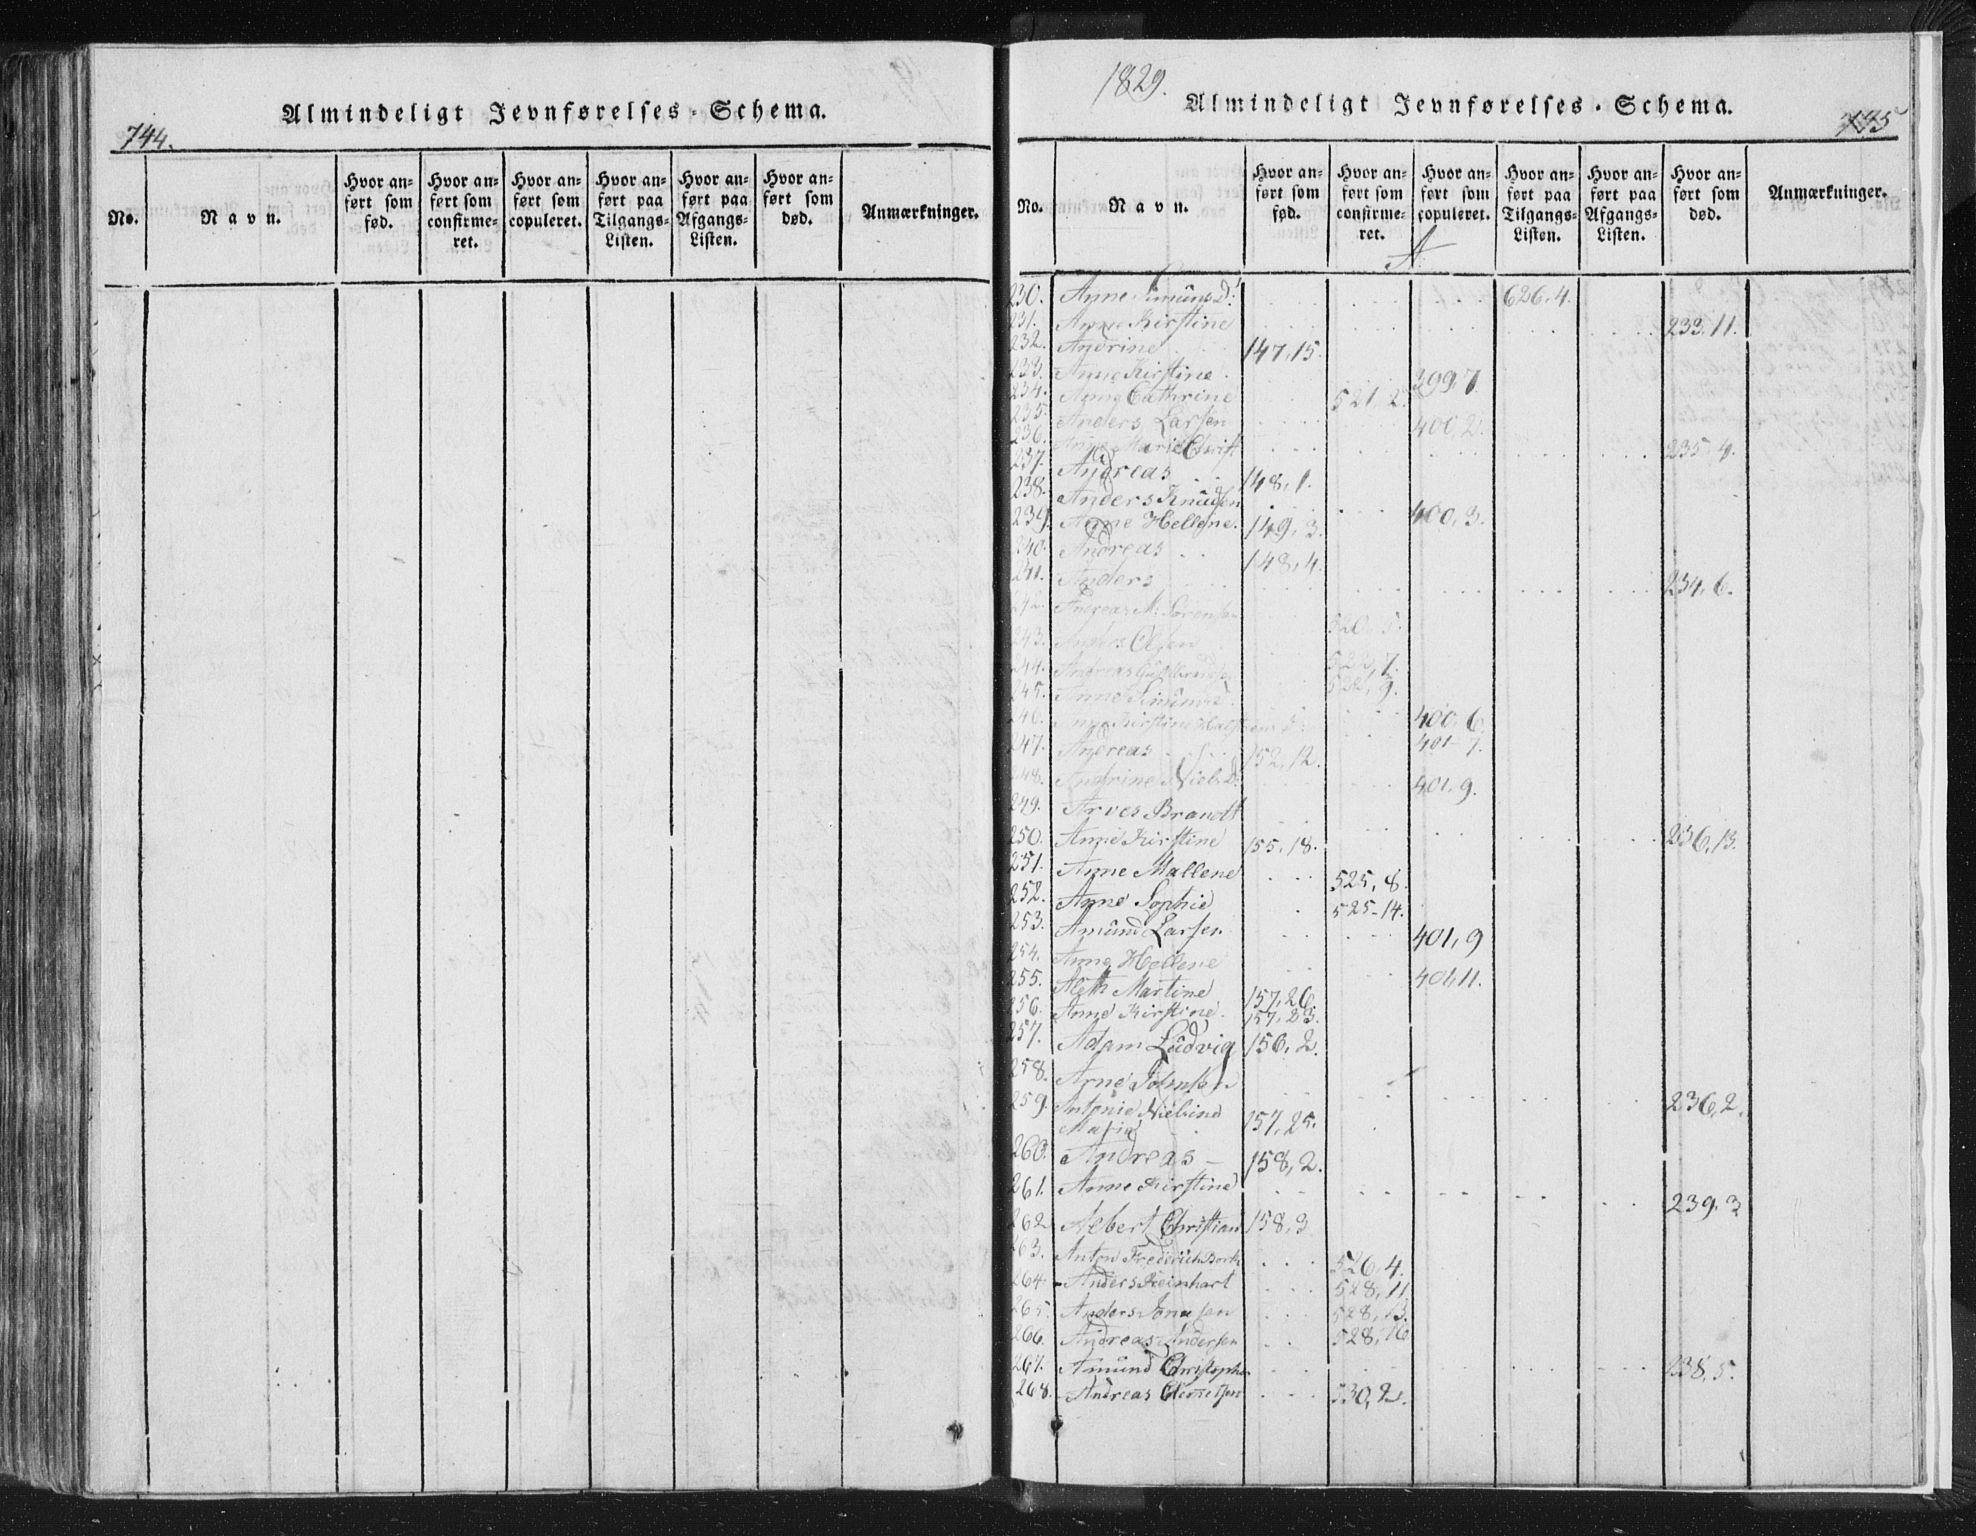 Almindeligt Jevnførelses-Schema.
744.
No.
Navn.
Hvor anført som fød.
Hvor anført som confirmeret.
Hvor anført som copuleret.
Hvor anført paa Tilgangs-Listen.
Hvor anført paa Afgangs-Listen.
Hvor anført som død.
Anmærkninger.
1829.
Almindeligt Jevnførelses-Schema.
No.
Navn.
Hvor anført som fød.
Hvor anført som confirmeret.
Hvor anført som copuleret.
Hvor anført paa Tilgangs-Listen.
Hvor anført paa Afgangs-Listen.
Hvor anført som død.
Anmærkninger.
A.
230. Anne D: 626,4.
231. Anne Kirstine 233,11.
232. Andrine 147,15.
233. Anne Kirstine 399,7
234. Anne Cathrine 521,2.
235. Anders Larsen 400,2.
236. Anne Marie Christ 235,4.
237. Andreas 148,1.
238. Anders Knudsen 400,3.
239. Anne Hellene. 149,3.
240. Andreas 148,4.
241. Anders 234,6.
242. Andreas M: Sörensen
243. Anders Olsen 522,7.
244. Andreas
245. Anne 400,6
246. Anne Kirstine 401-7.
247. Andreas 152,12.
248. Andrine Niels D: 401,9.
249. Arves Brandt 236,13.
250. Anne Kirstine 155,18.
251. Anne Mallene 525,8.
252. Anne Sophie 525-14.
253. Amund Larsen 401,9
254. Anne Hellene 401,11.
255. Aleth Martine 157,26.
256. Anne Kirstine. 157,23.
257. Adam Ludvig 156,2.
258. Arne Johnsen 236,2.
259. Antonie Nielsine
Maria 157,25.
260. Andreas – 158,2.
261. Anne Kirstine 239,3
262 Albert Christian 158,3
263. Anton Frederich 526,4.
264 Anders Reinhart 528,11
265. Anders 528,13.
266. Andreas Andersen 528,16
267. Amund Christopher 238,5.
268. Andreas Clemetsen 530,2.